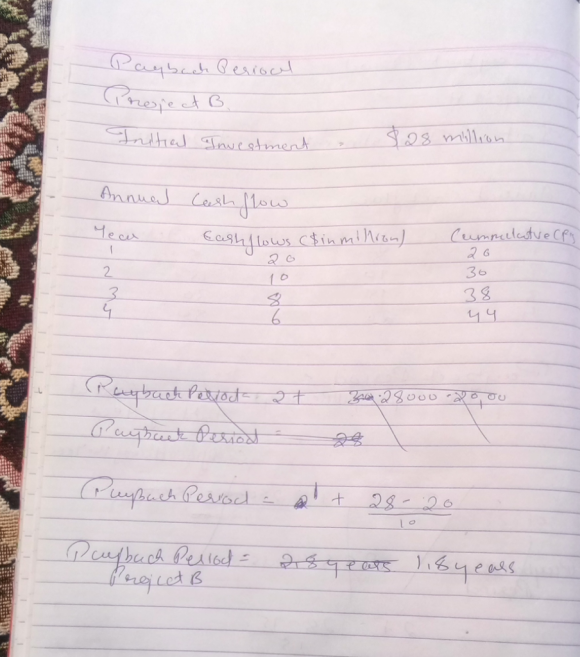 Payback Period
Project B.
Initial Investment . $28 million
Annual Cashflow
Year Cashflows ($ in million) Cummulative CF
1 20 20
2 10 30
3 8 38
4 6 44
Payback Period = 2 + 28000 - 20,00
Payback Period = 28
Payback Period = 1 + 28 - 20
10
Payback Period = 2.8 years 1.8 years
Project B